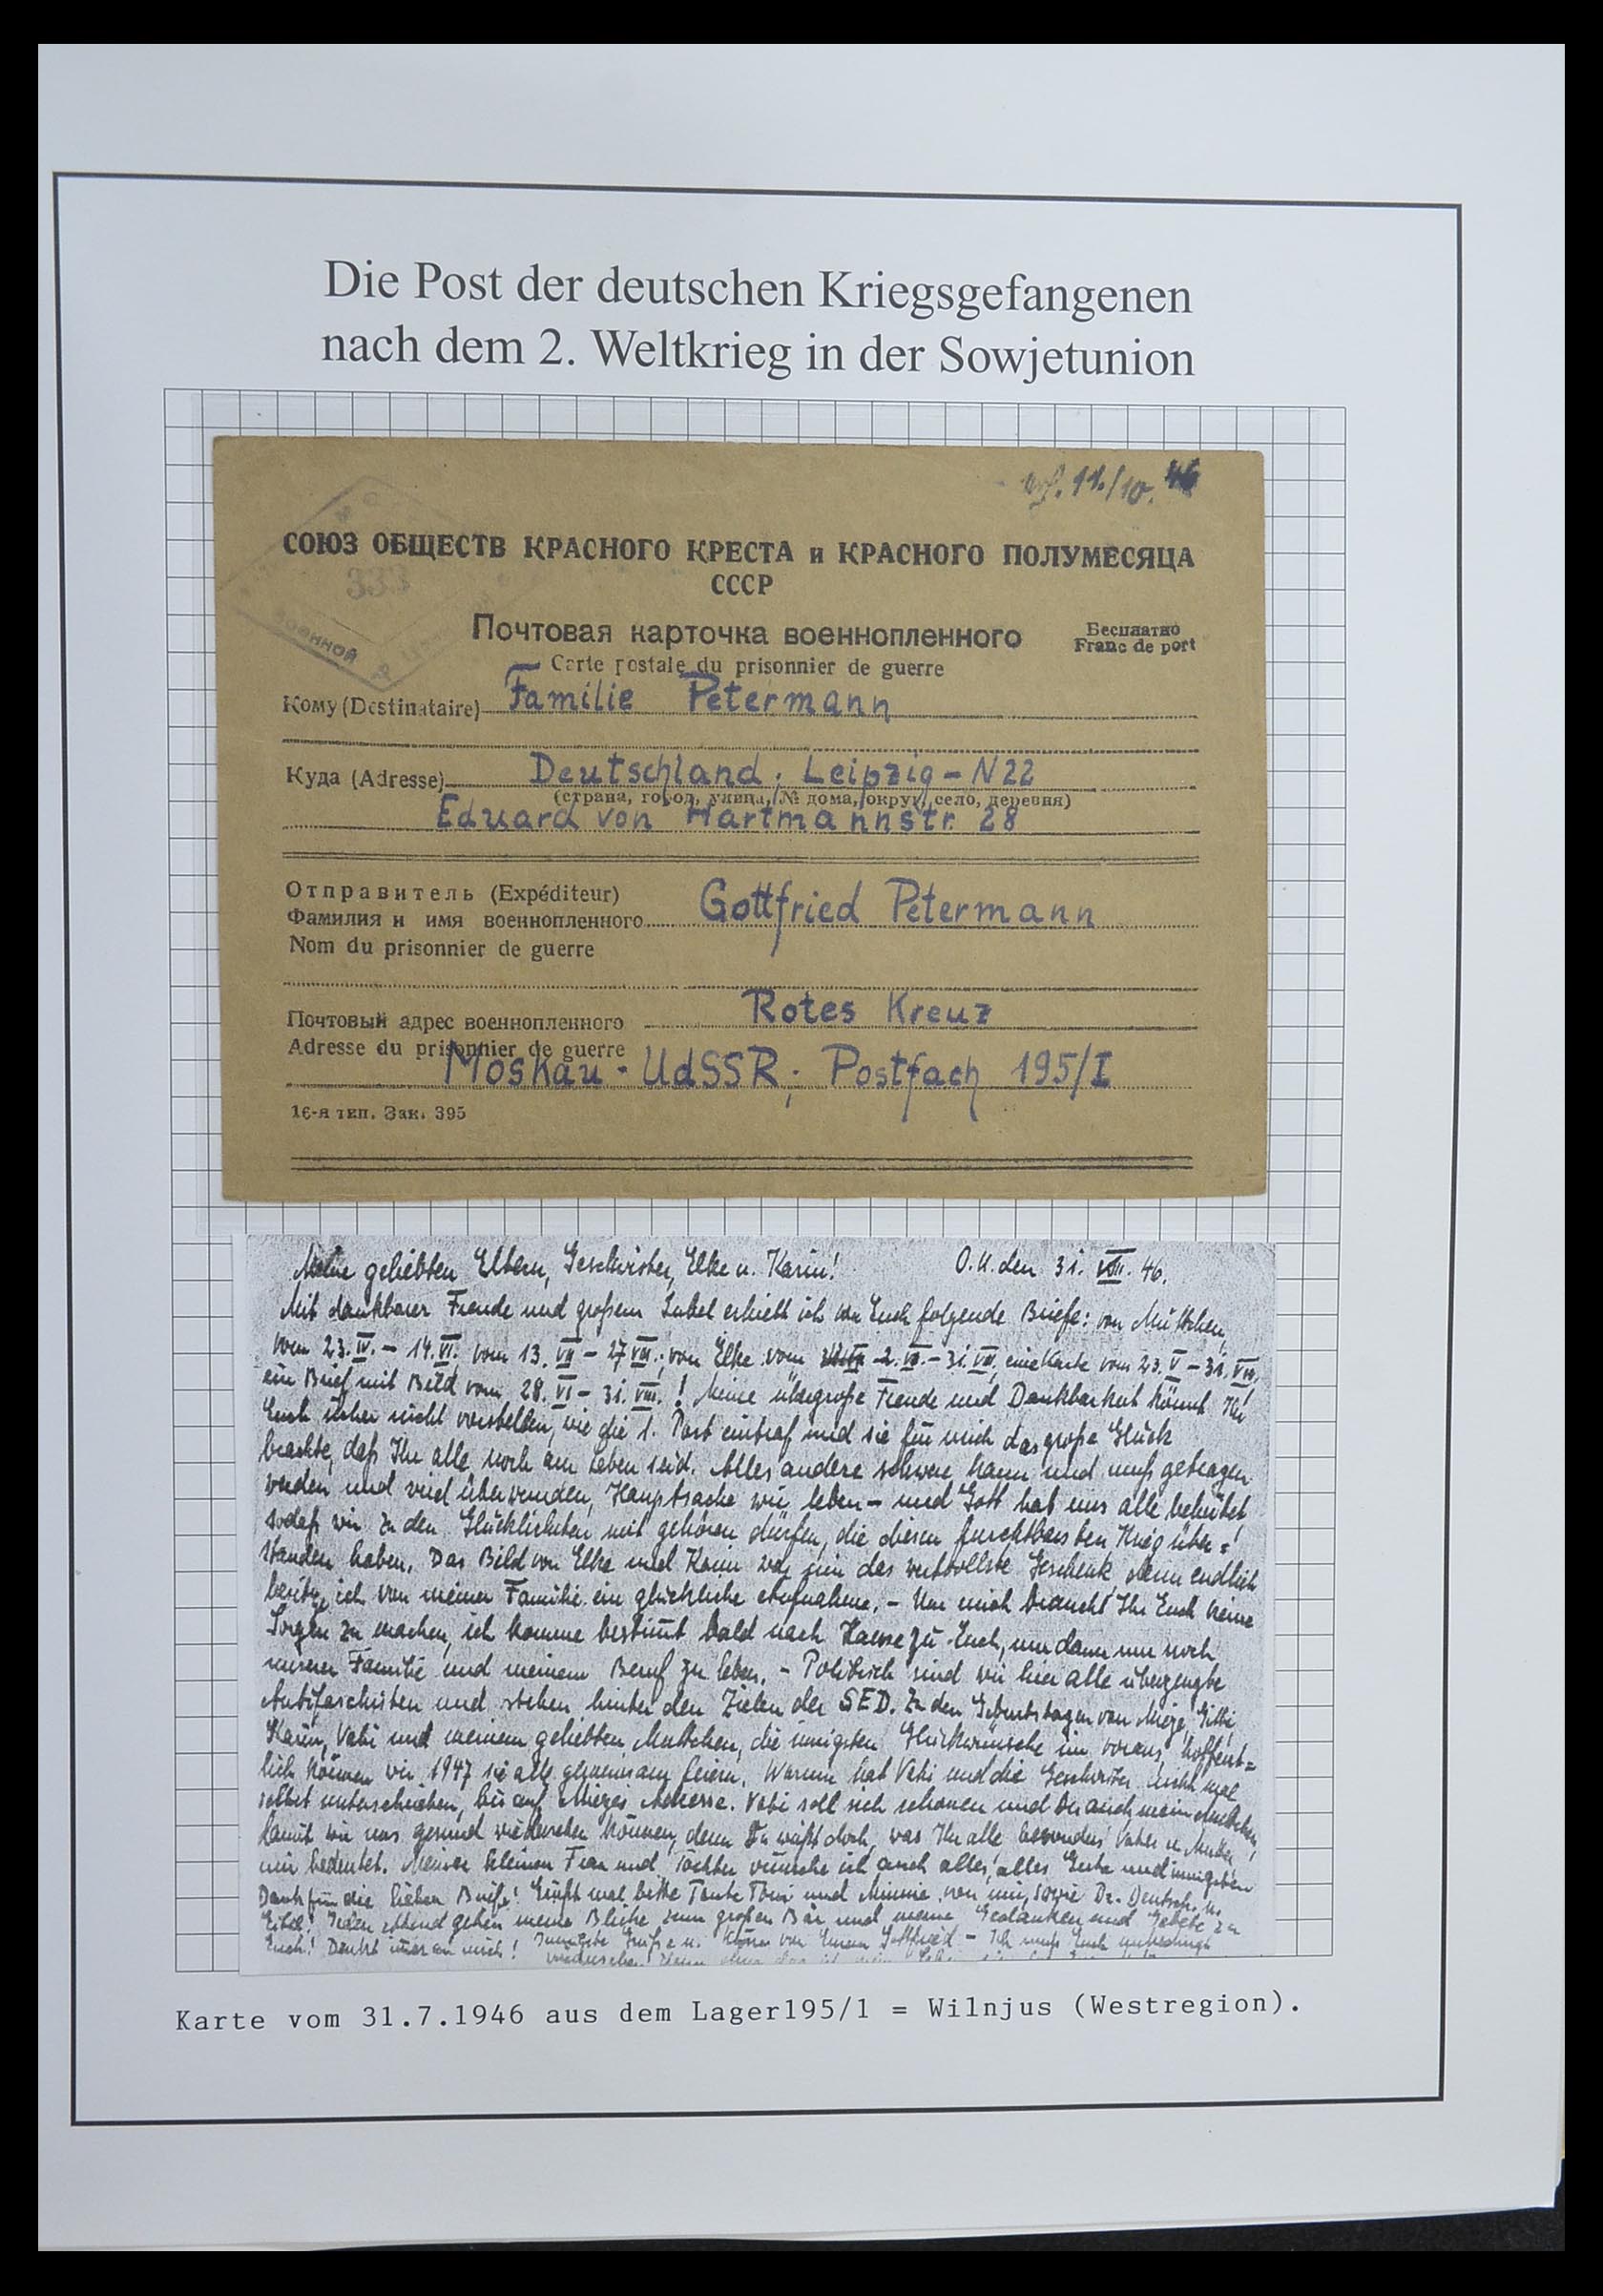 Die Post der deutschen Kriegsgefangenen
nach dem 2. Weltkrieg in der Sowjetunion
11./10. 46
СОЮЗ ОБЩЕСТВ КРАСНОГО КРЕСТА и КРАСНОГО ПОЛУМЕСЯЦА
СССР
333
ВОЕННОЙ
Почтовая карточка военнопленного
Бесплатно
Carte postale du prisonnier de guerre
Franc de port
Кому (Destinataire) Familie Petermann
Куда (Adresse) Deutschland, Leipzig - N22
(страна, город, улица, № дома, округ, село, деревня)
Eduard von Hartmannstr. 28
Отправитель (Expéditeur)
Фамилия и имя военнопленного Gottfried Petermann
Nom du prisonnier de guerre
Почтовый адрес военнопленного Rotes Kreuz
Adresse du prisonnier de guerre
Moskau - UdSSR; Postfach 195/I
16-я тип. Зак. 395
Meine geliebten Eltern, Geschwister, Elke u. Karin! O.U. den 31. VIII. 46.
Mit dankbarer Freude und großem Jubel erhielt ich von Euch folgende Briefe: von Muttchen
vom 23. IV. - 14. VI. vom 13. VII - 27 VIII.; von Elke vom 2. VII. - 31. VIII, eine Karte vom 23. V - 31. VII,
ein Brief mit Bild vom 28. VI - 31. VIII.! Meine übergroße Freude und Dankbarkeit könnt Ihr
Euch sicher nicht vorstellen, wie die 1. Post eintraf und sie für mich das große Glück
brachte, daß Ihr alle noch am Leben seid. Alles andere schwere kann und muß getragen
werden und wird überwunden, Hauptsache wir leben - und Gott hat uns alle behütet
sodaß wir zu den Glücklichsten mit gehören dürfen, die diesen furchtbarsten Krieg über=
standen haben. Das Bild von Elke und Karin war das wertvollste Geschenk, denn endlich
besitze ich von meiner Familie eine glückliche Aufnahme. - Um mich braucht Ihr Euch keine
Sorgen zu machen, ich komme bestimmt bald nach Hause zu Euch, um dann nur noch
unserer Familie und meinem Beruf zu leben. - Politisch sind wir hier alle überzeugte
Antifaschisten und stehen hinter den Zielen der SED. Zu den Geburtstagen von Mieze,
Karin, Vati und meinem geliebten Muttchen, die innigsten Glückwünsche im voraus, hoffent=
lich können wir 1947 sie alle gemeinsam feiern. Warum hat Vati und die Geschwister nicht mal
selbst unterschrieben, bis auf Miezes Adresse. Vati soll sich schonen und Du auch mein Muttchen,
damit wir uns gesund wiedersehen können, denn Du weißt doch, was Ihr alle besonders Vater u. Mutter
mir bedeutet. Meiner kleinen Frau und Töchter wünsche ich auch alles, alles Gute und innigsten
Dank für die lieben Briefe! Grüßt mal bitte Tante Toni und Minnie von mir, sowie Dr. Deutsch. u.
Jeden Abend gehen meine Blicke zum großen Bär und meine Gedanken und Gebete zu
Euch! Denkt immer an mich! Innigste Grüße u. Küsse von Eurem Gottfried - Ich muß Euch unbedingt
Karte vom 31.7.1946 aus dem Lager195/1 = Wilnjus (Westregion).